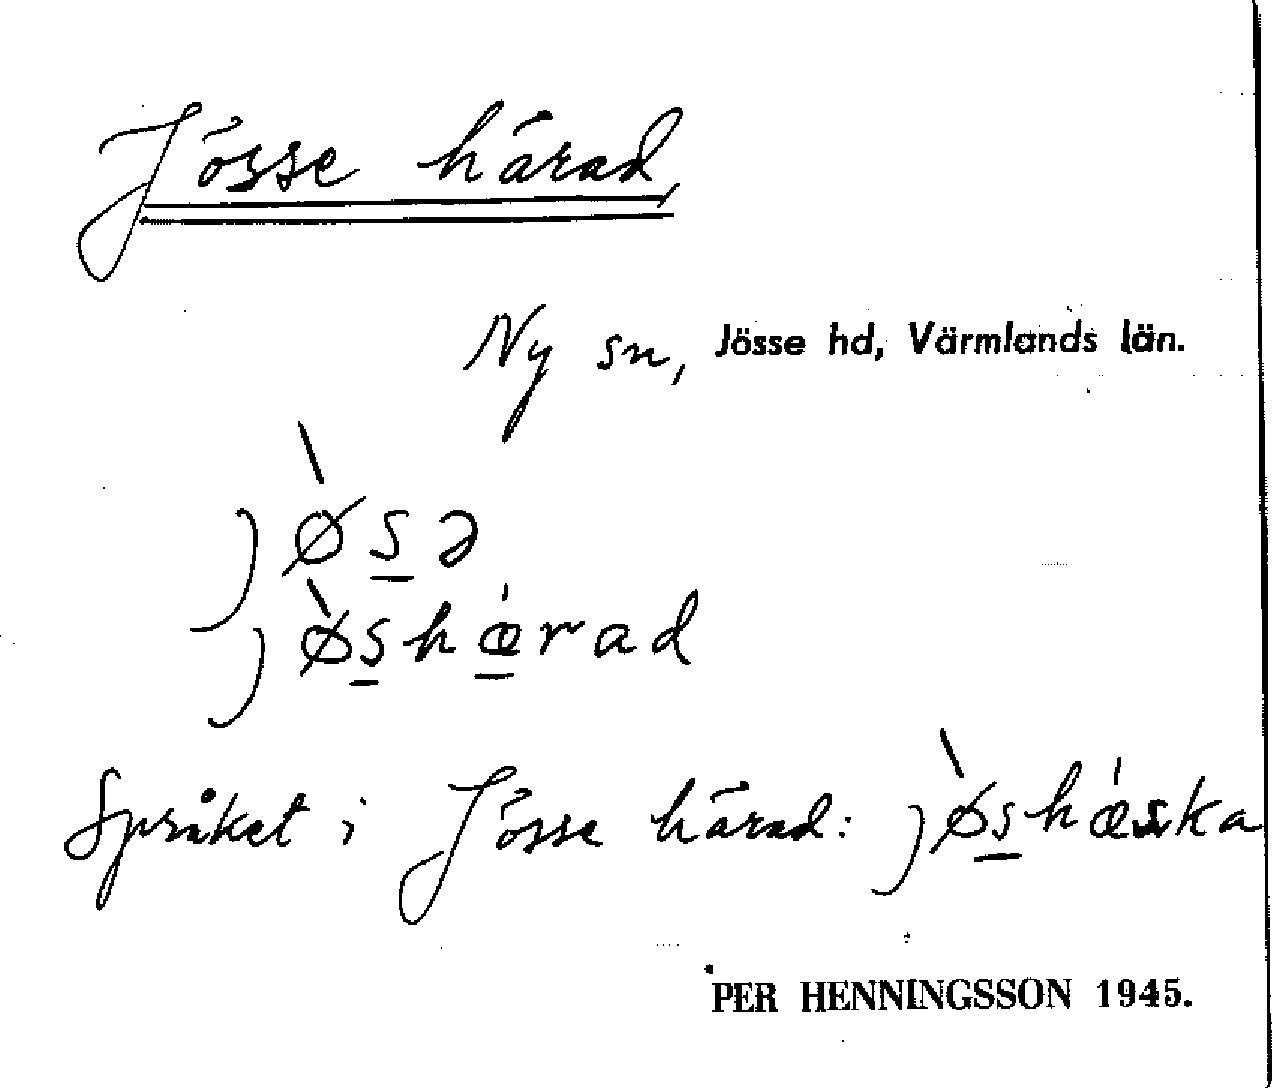 Jösse härad,
Ny sn, Jösse hd, Värmlands län.
jø̀s̲ə
jø̀s̲hǽ̲rad
Språket i Jösse härad: jø̀s̲hǽska
PER HENNINGSSON 1945.